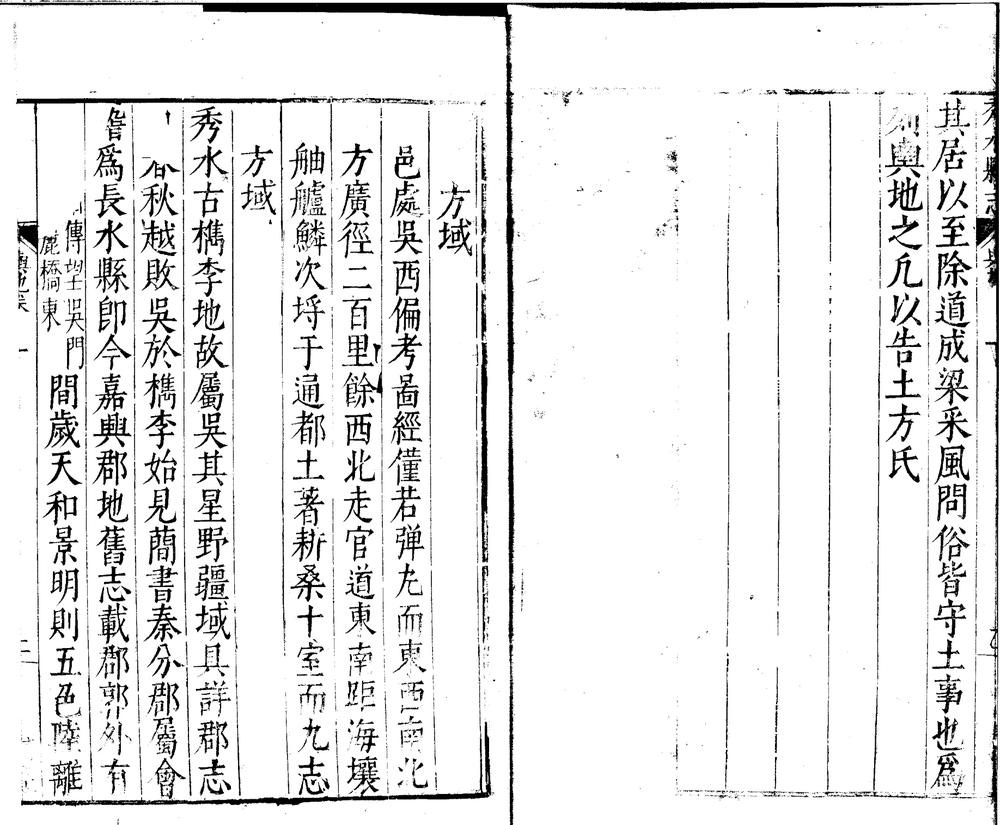 秀水縣志
其居以至除道成梁采風問俗皆守土事也爲
列輿地之凡以告土方氏
方域
邑處吳西偏考啚經僅若弹丸而東西南北
方廣徑二百里餘西北走官道東南距海壤
舳艫鱗次埒于通都土著耕桑十室而九志
方域
秀水古檇李地故屬吳其星野疆域具詳郡志
春秋越敗吳於檇李始見簡書秦分郡屬會
爲長水縣卽今嘉興郡地舊志載郡郭外有
傳望吳門
鹿橋東
間歲天和景明則五色陸離
輿地卷一